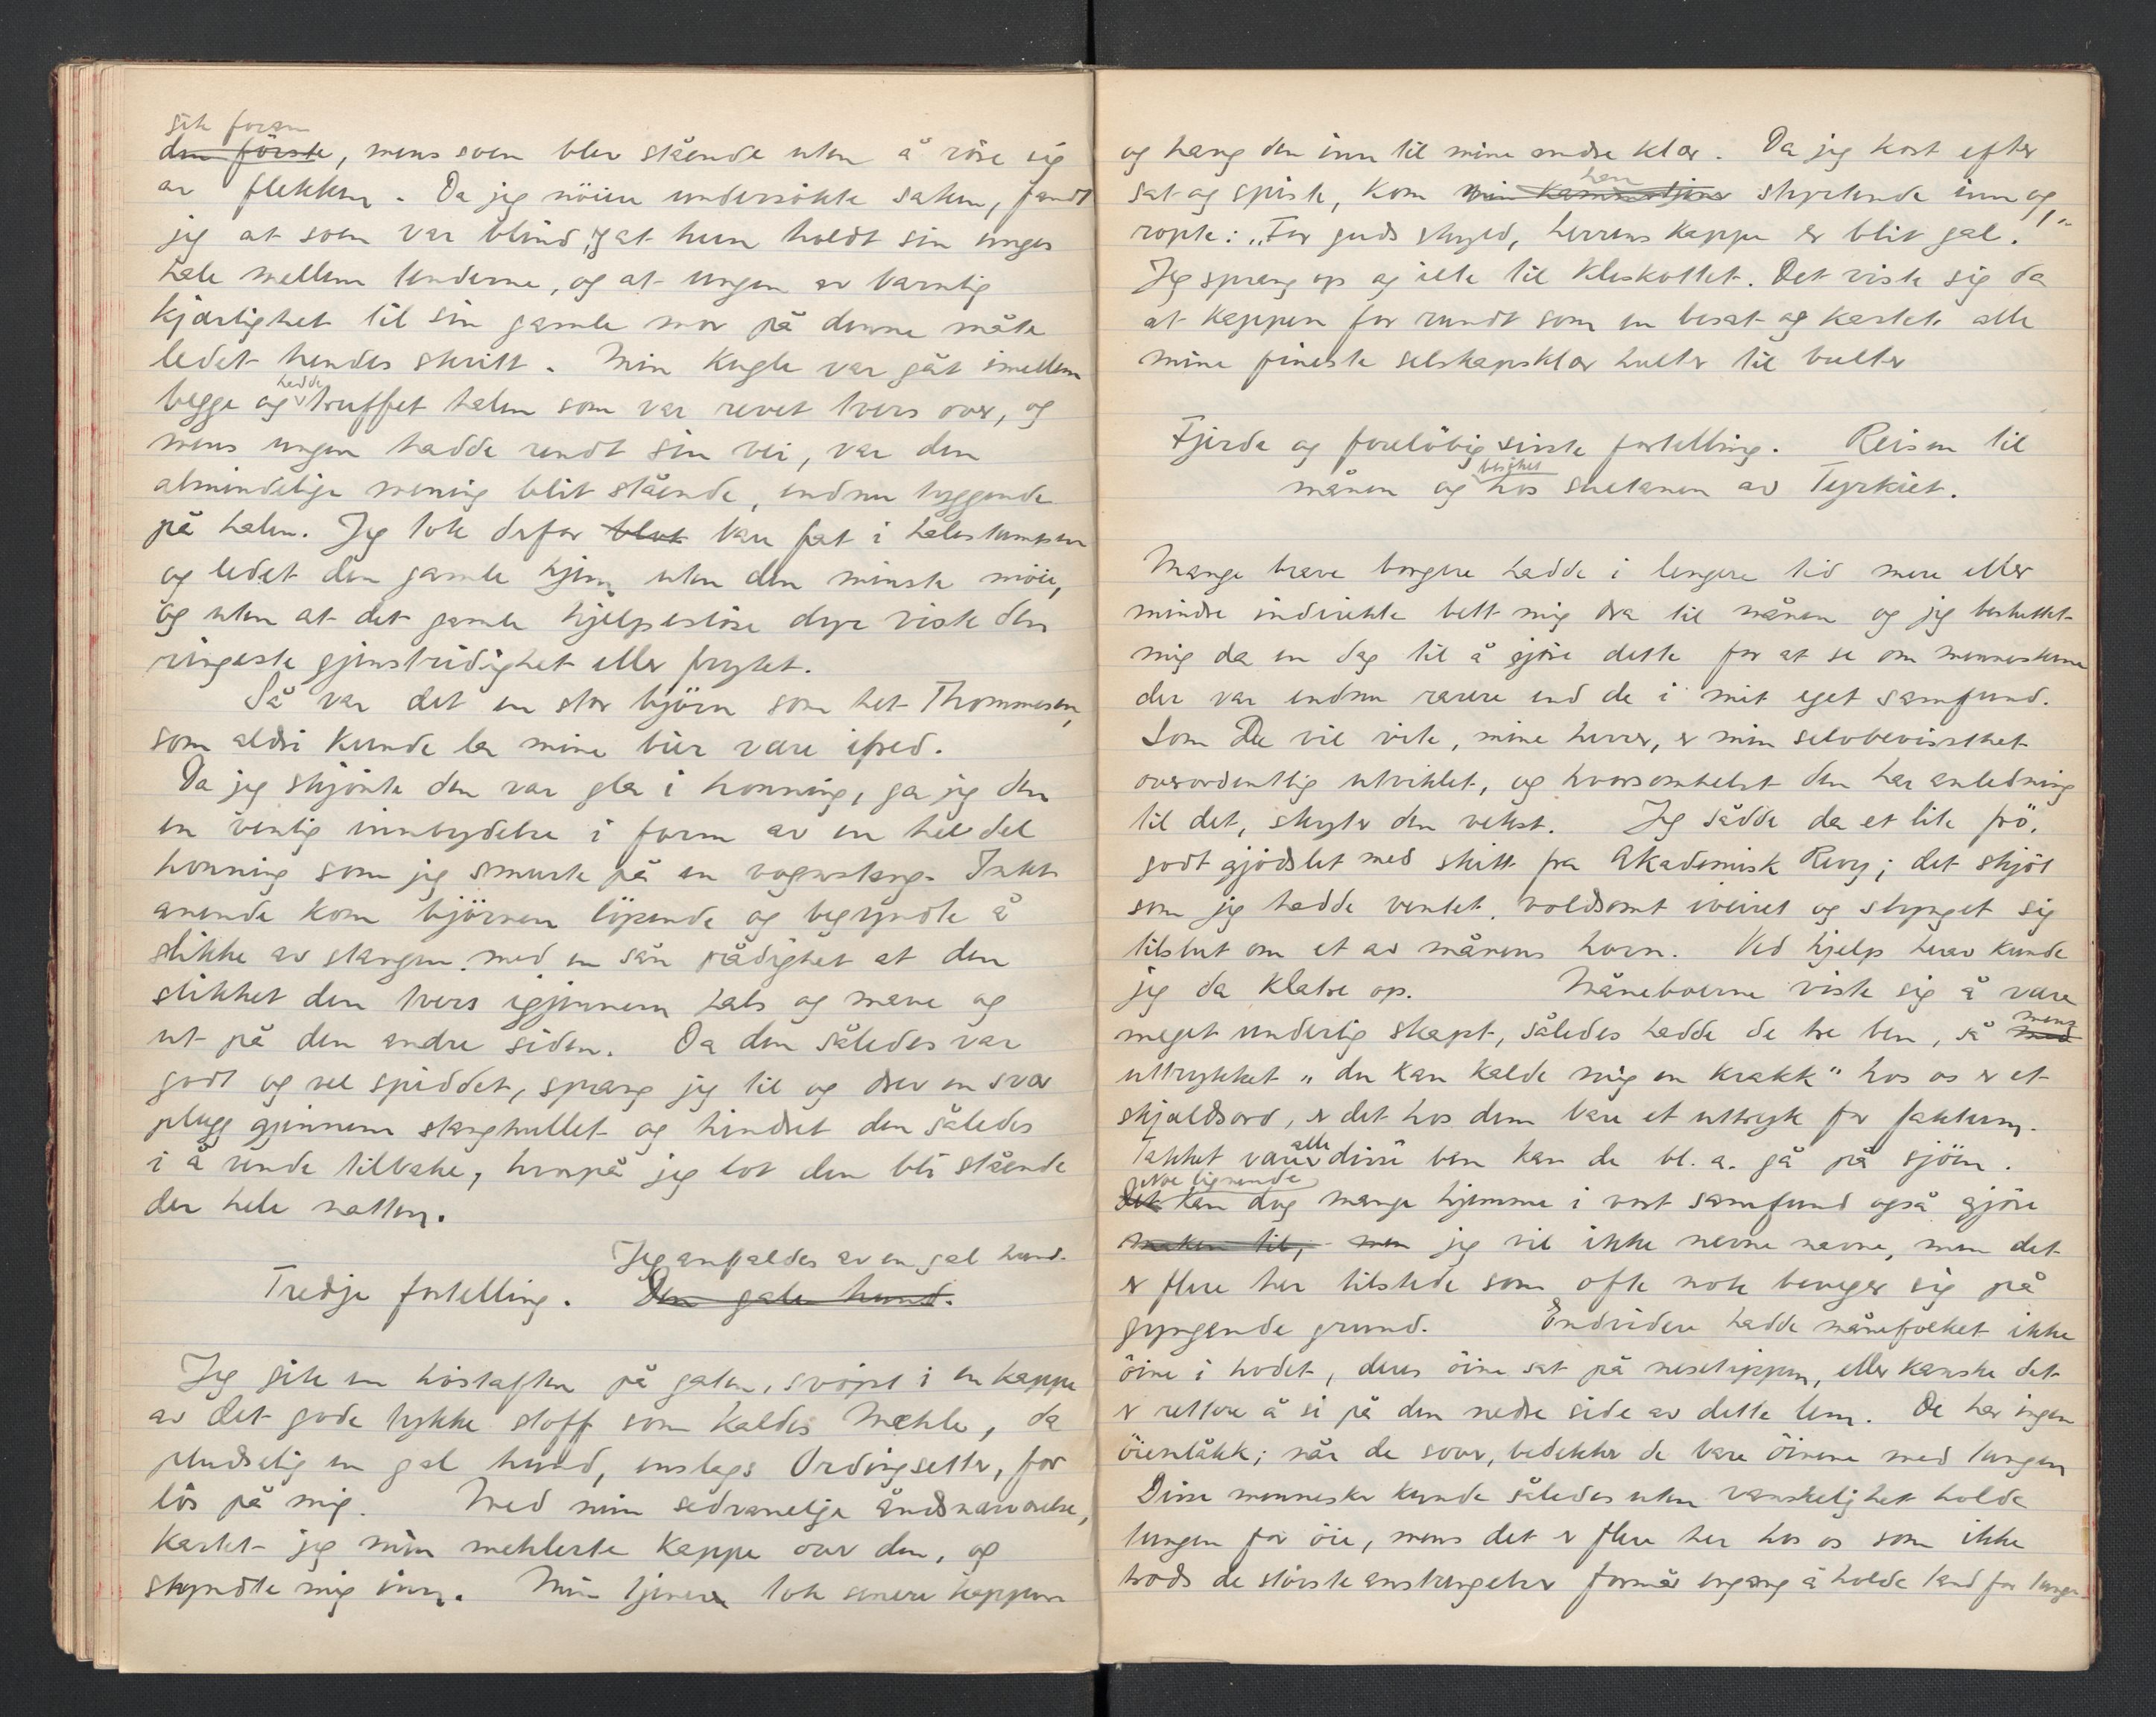 gik foran
den förste, mens soen blev stående uten å röre sig
av flekken. Da jeg nöiere undersökte saken, fandt
jeg at soen var blind, og at hun holdt sin unges
hale mellem tenderne, og at ungen av barnlig
kjærlighet til sin gamle mor på denne måte
ledet hendes skritt. Min kugle var gåt imellem
begge og hadde truffet halen som var revet tvers over, og
mens ungen hadde rendt sin vei, var den
almindelige mening blit stående, endnu tyggende
på halen. Jeg tok derfor blot bare fat i halestumpen
og ledet den gamle hjem uten den minste möie,
og uten at det gamle hjelpeslöse dyr viste den
ringeste gjenstridighet eller frykt.
Så var det en stor björn som het Thommesen,
som aldri kunde la mine bier være ifred.
Da jeg skjönte den var gla i honning, ga jeg den
en venlig innbydelse i form av en hel del
honning som jeg smurte på en vognstang. Intet
anende kom björnen löpende og begyndte å
slikke av stangen med en sån grådighet at den
slikket den tvers igjennem hals og mave og
ut på den andre siden. Da den således var
godt og vel spiddet, sprang jeg til og drev en svær
plugg gjennem stanghullet og hindret den således
i å rende tilbake, hvorpå jeg lot den bli stående
der hele natten.
Jeg anfaldes av en gal hund.
Tredje fortelling. Den gale hund.
Jeg gik en höstaften på gaten, svöpt i en kappe
av det gode tykke stoff som kaldes Mæhle, da
pludselig en gal hund, enslags Ordingsetter, for
lös på mig. Med min sedvanelige åndsnærværelse,
kastet jeg min mehlerte kappe over den, og
skyndte mig inn. Min tjener tok senere kappen
og hang den inn til mine andre klær. Da jeg kort efter
sat og spiste, kom min kammertjener han styrtende inn og
ropte: „For guds skyld, herrens kappe er blit gal."
Jeg sprang op og ilte til kleskottet. Det viste sig da
at kappen for rundt som en besat og kastet alle
mine fineste selskapsklær hulter til bulter
Fjerde og foreløbig siste fortelling. Reisen til
månen og besöket hos sultanen av Tyrkiet.
Mange brave borgere hadde i lengere tid mere eller
mindre indirekte bett mig dra til månen og jeg besluttet
mig da en dag til å gjöre dette for at se om menneskene
der var endnu rarere end de i mit eget samfund.
Som De vil vite, mine herrer, er min selvbevissthet
overordentlig utviklet, og hvorsomhelst den har anledning
til det, skyter den vekst. Jeg sådde da et lite frö,
godt gjödslet med skitt fra Akademisk Revy; det skjöt
som jeg hadde ventet, voldsomt iveiret og slynget sig
tilslut om et av månens horn. Ved hjelp herav kunde
jeg da klatre op. Måneboerne viste sig å være
meget underlig skapt, således hadde de tre ben, så med mens
uttrykket „du kan kalde mig en krakk" hos os er et
skjældsord, er det hos dem bare et uttryk for faktum.
Takket være alle disse ben kan de bl. a. gå på sjöen.
Det Noe lignende kan dog mange hjemme i vort samfund også gjöre
maken til, men jeg vil ikke nevne navne, men det
er flere her tilstede som ofte nok beveger sig på
gyngende grund. Endvidere hadde månefolket ikke
öine i hodet, deres öine sat på nesetippen, eller kanske det
er rettere å si på den nedre side av dette lem. De har ingen
öienlåkk; når de sover, bedekker de bare öinene med tungen
Disse mennesker kunde således uten vanskelighet holde
tungen for öie, mens det er flere her hos os som ikke
trods de störste anstrengelser formår engang å holde tand for tunge